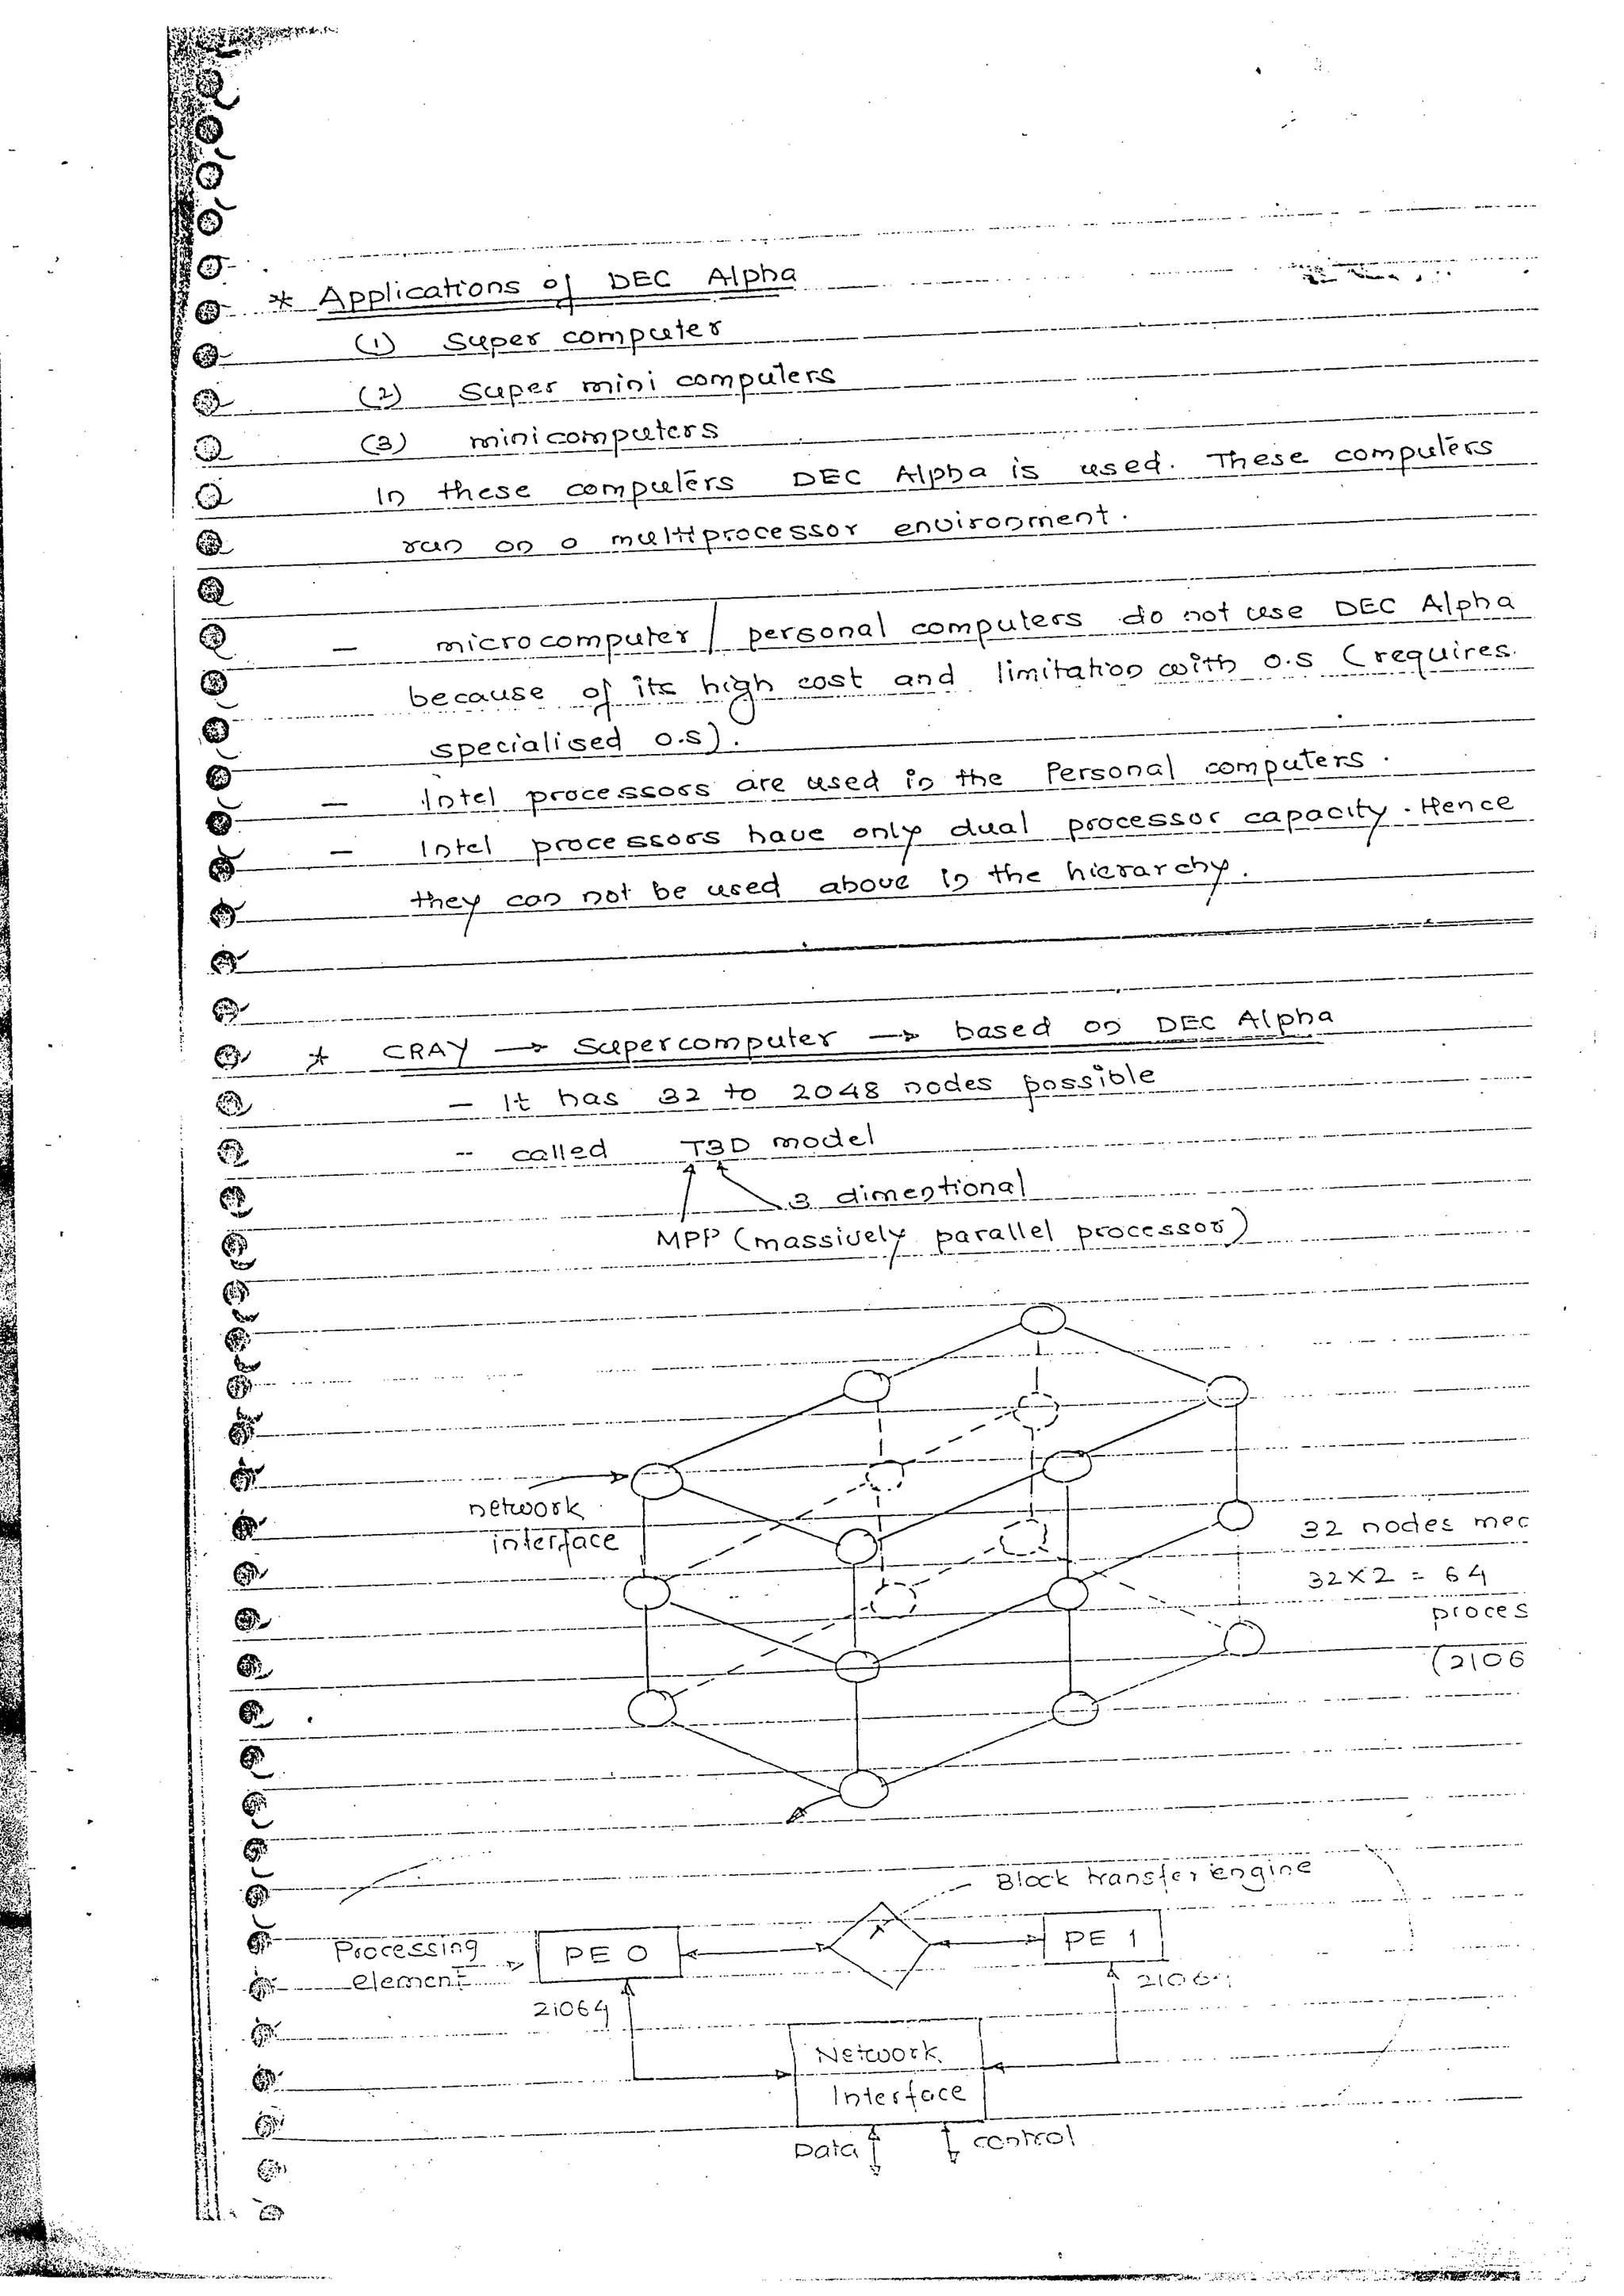 * Applications of DEC Alpha
(1) Super computer
(2) Super mini computers
(3) minicomputers
In these computers DEC Alpha is used. These computers
run on a multiprocessor environment.
- microcomputer / personal computers do not use DEC Alpha
because of its high cost and limitation with o.s (requires
specialised o.s).
- Intel processors are used in the Personal computers.
- Intel processors have only dual processor capacity. Hence
they can not be used above in the hierarchy.
* CRAY → Supercomputer → based on DEC Alpha
- It has 32 to 2048 nodes possible
- called T3D model
3 dimentional
MPP (massively parallel processor)
network
interface
32 nodes mec
32x2 = 64
proces
(2106
Block transfer engine
Processing
element
PE 0
PE 1
21064
21064
Network
Interface
Data
control